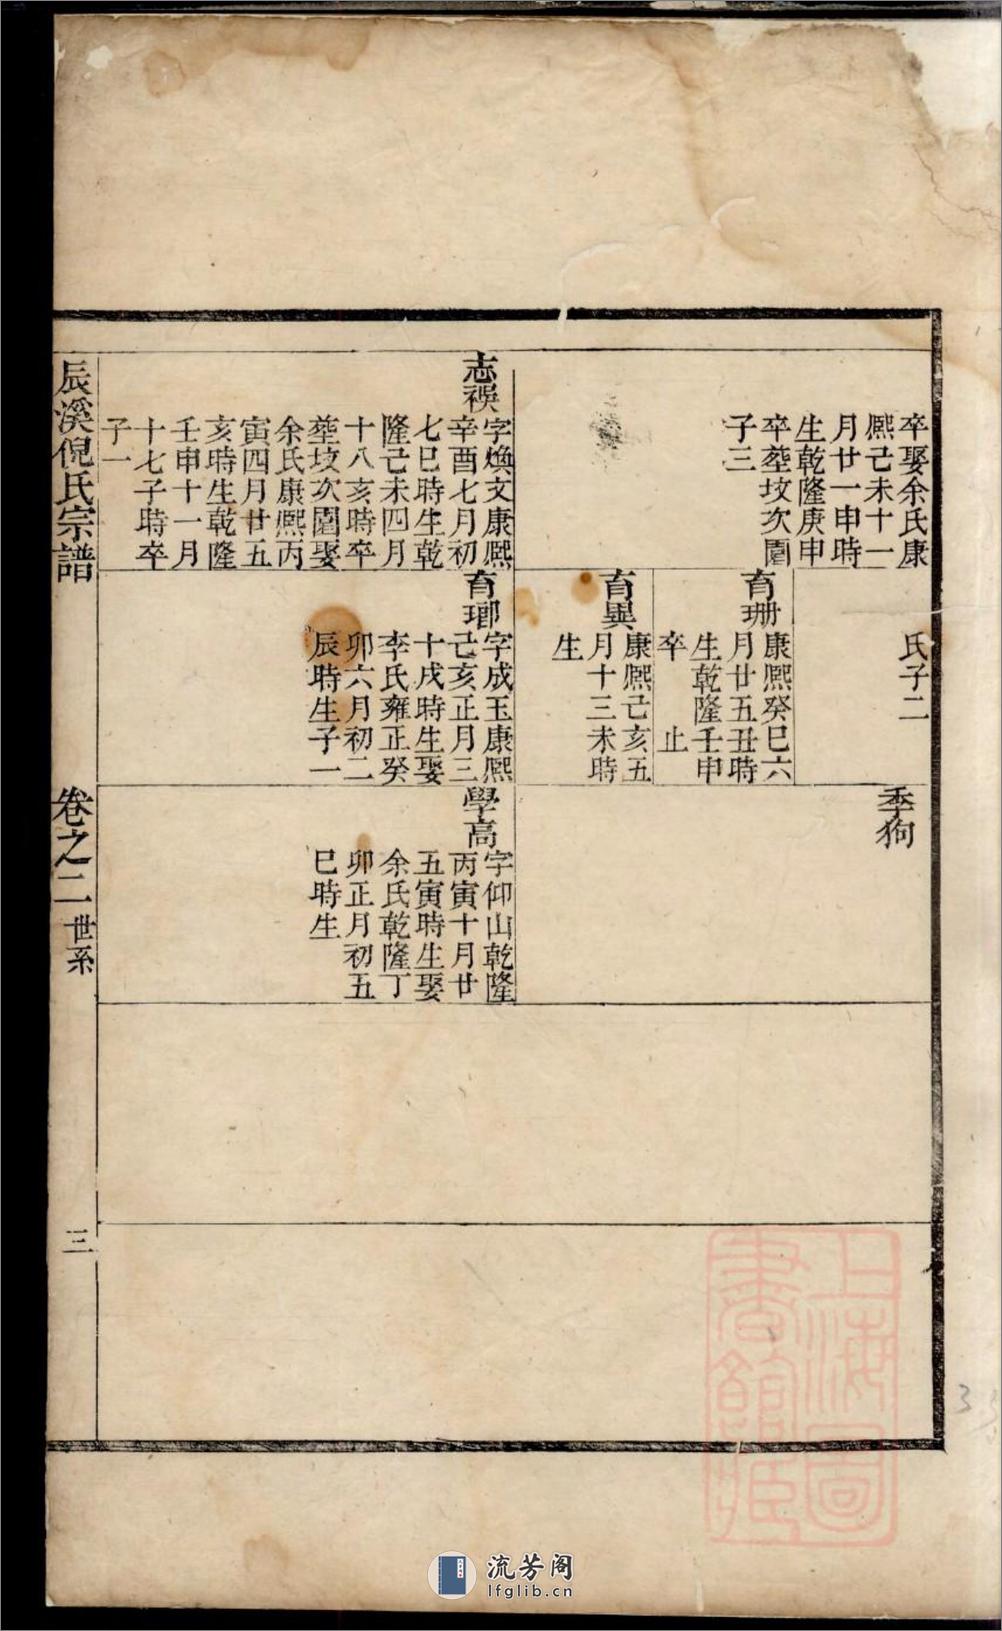 卒娶余氏康
熙己未十一
月廿一申時
生乾隆庚申
卒塟坟次圍
子三
志祦
字煥文康熙
辛酉七月初
七巳時生乾
隆己未四月
十八亥時卒
塟坟次圍娶
余氏康熙丙
寅四月廿五
亥時生乾隆
壬申十一月
十七子時卒
子一
氏子二
育珊
康熙癸巳六
月廿五丑時
生乾隆壬申
卒 止
育異
康熙己亥五
月十三未時
生
育瑯
字成玉康熙
己亥正月三
十戌時生娶
李氏雍正癸
卯六月初二
辰時生子一
季狗
學高
字仰山乾隆
丙寅十月廿
五寅時生娶
余氏乾隆丁
卯正月初五
巳時生
辰溪倪氏宗譜
卷之二 世系
三
上海圖
書館藏
流芳阁
lfglib.cn